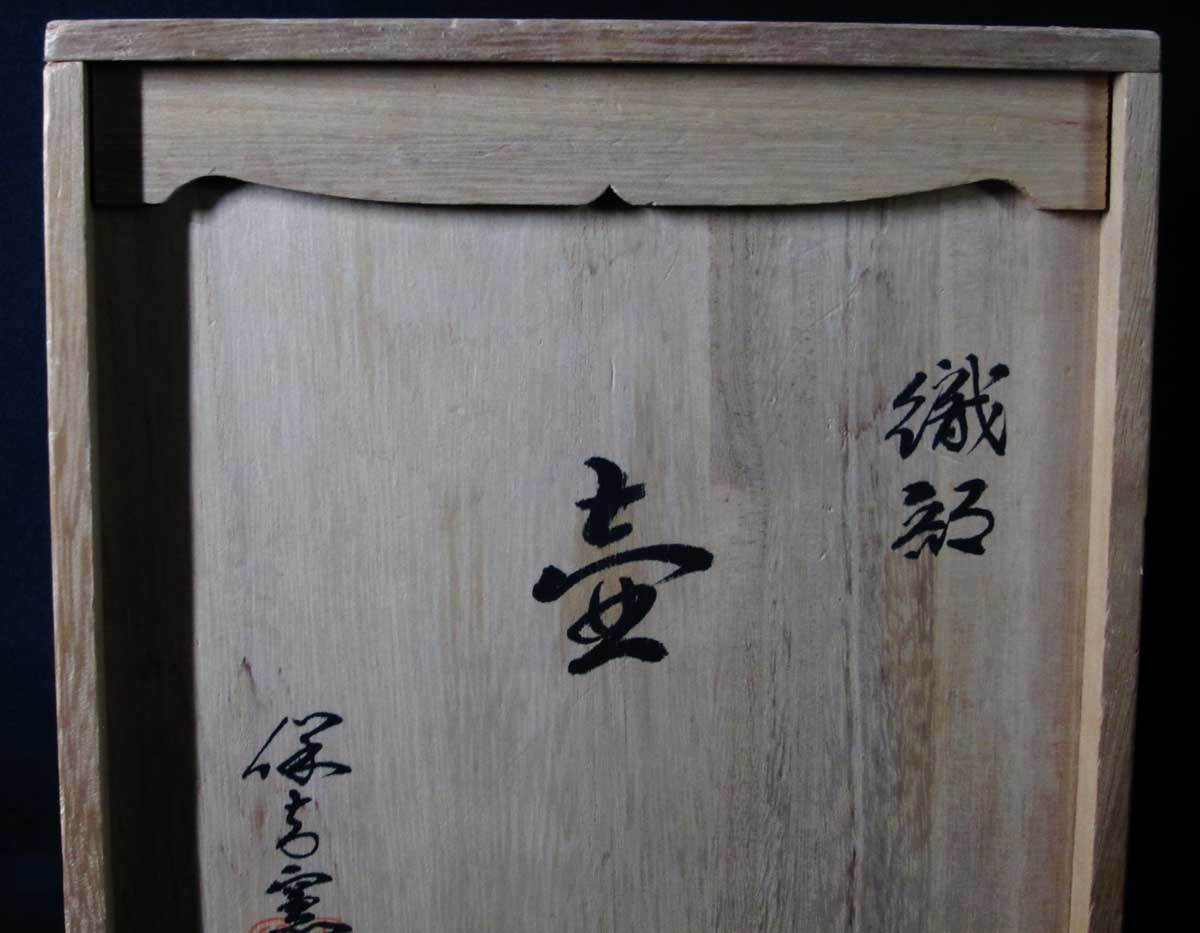 織部
壷
保
窯